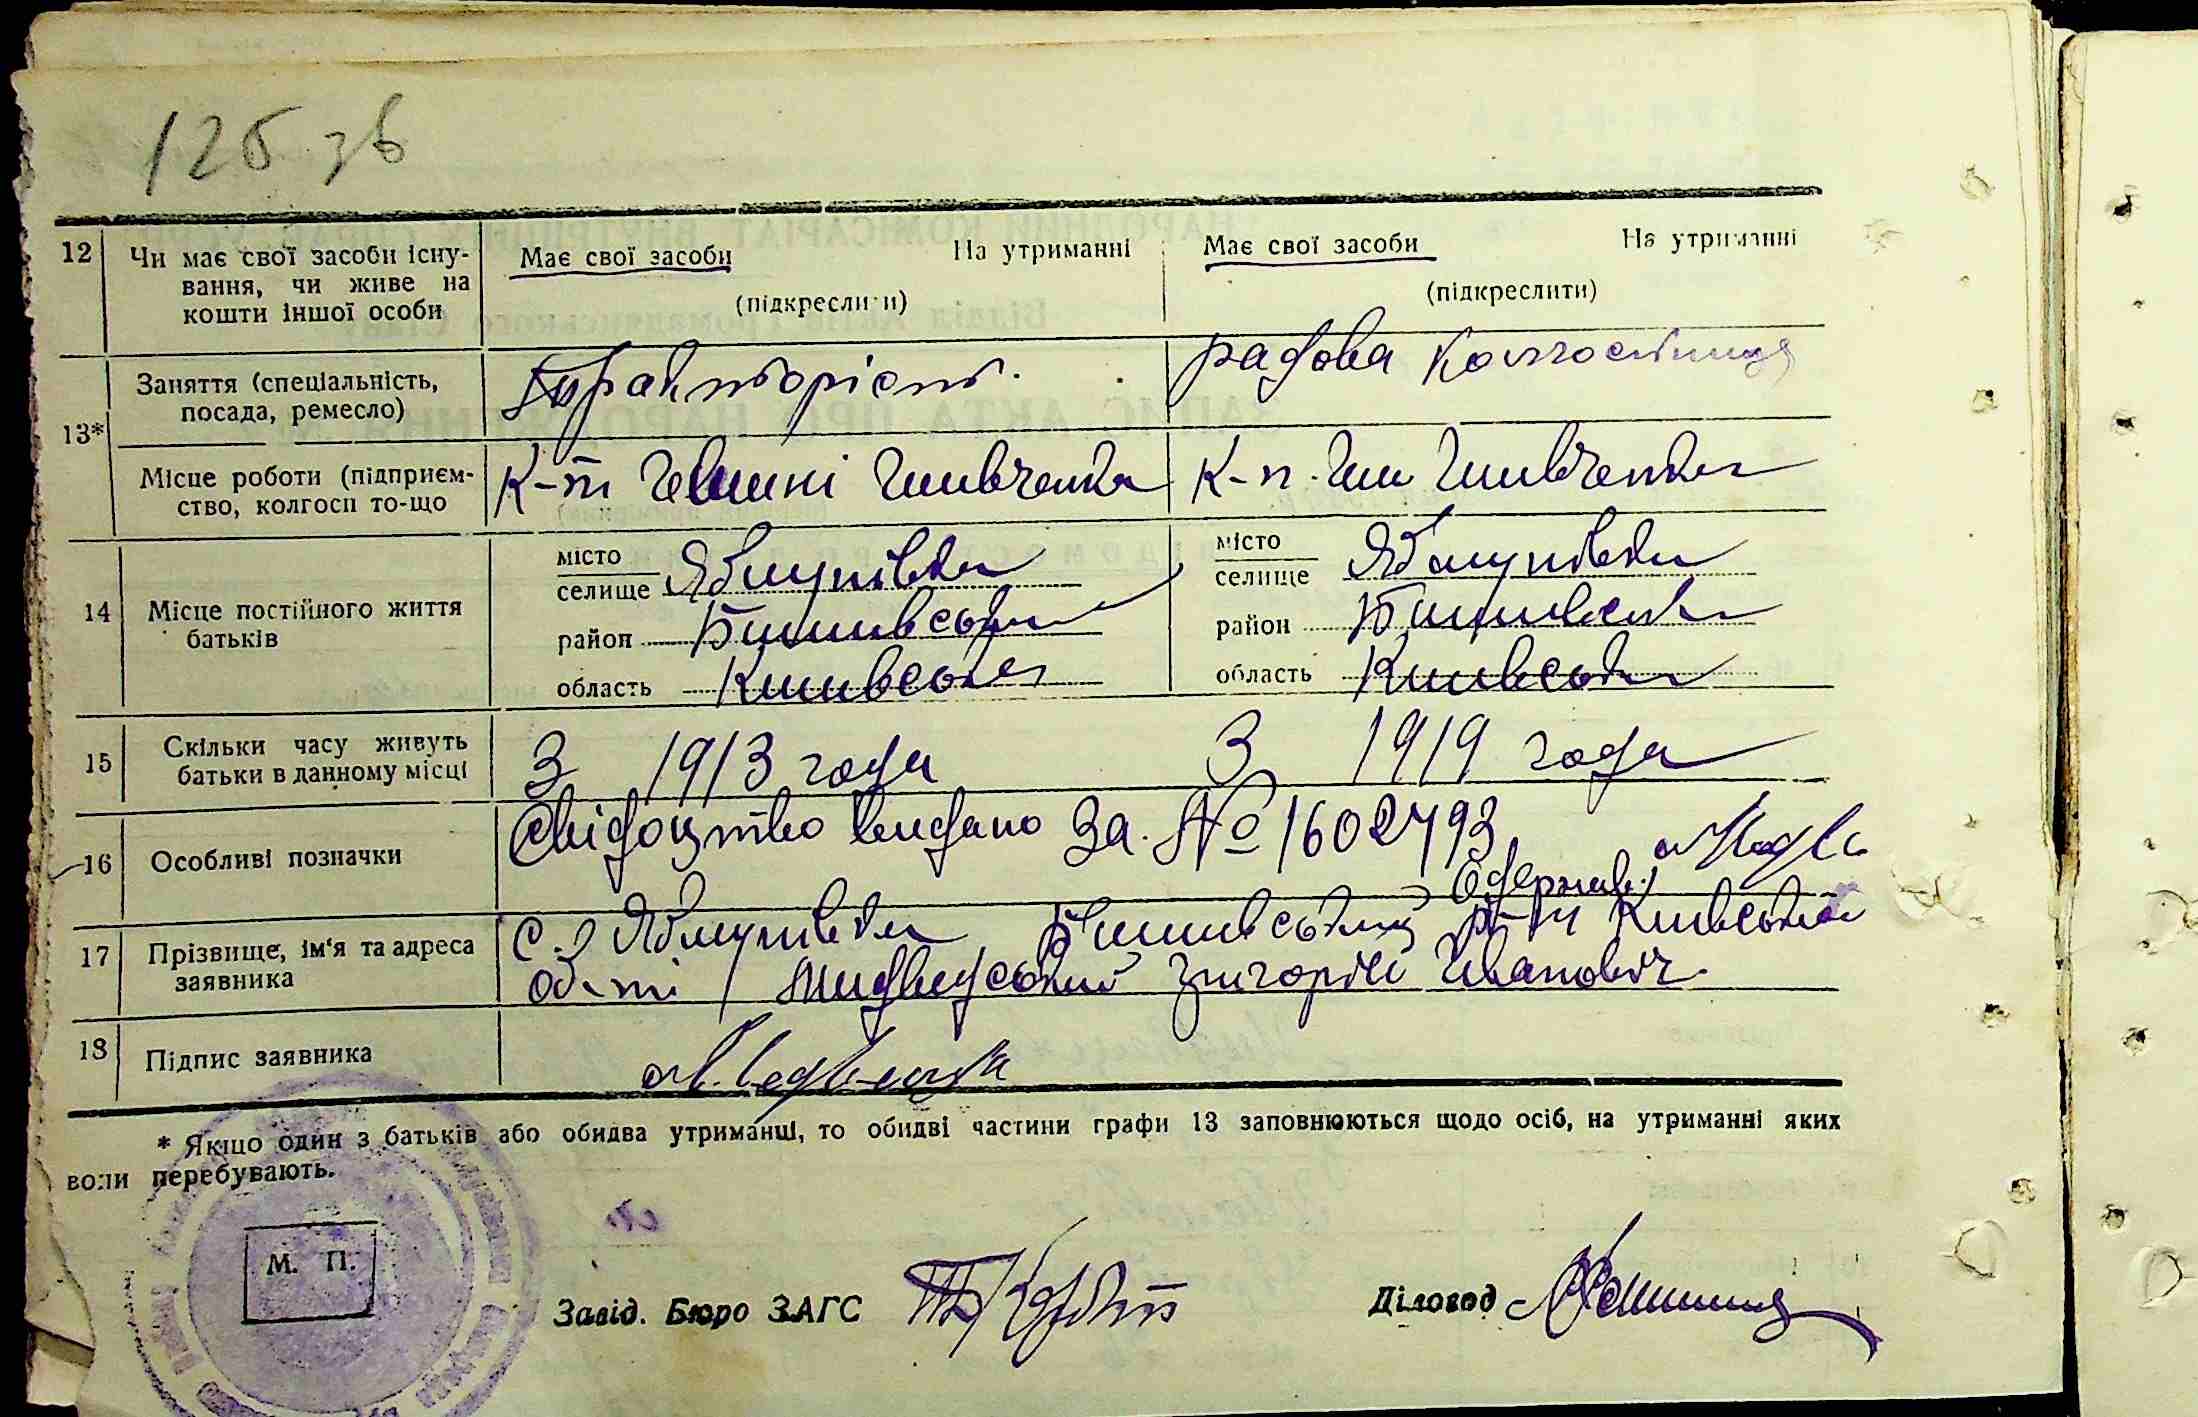 125 зв
12 Чи має свої засоби існування, чи живе на кошти іншої особи
Має свої засоби На утриманні Має свої засоби На утриманні
(підкреслити) (підкреслити)
13*
Заняття (спеціальність, посада, ремесло)
Тракторіст. радова колгоспниця
Місце роботи (підприємство, колгосп то-що
К-т Імені Шевченка К-п. Ім Шевченка
14 Місце постійного життя батьків
місто селище Яблунівка місто селище Яблунівка
район Бишивський район Бишивська
область Київська область Київська
15 Скільки часу живуть батьки в данному місці
З 1913 года З 1919 года
16 Особливі позначки
Свідоцтво видано за. № 1602493
Одержав
17 Прізвище, ім'я та адреса заявника
С. Яблунівка Бишивський р-н Київської
об-ті Григорій Іванович
18 Підпис заявника
* Якщо один з батьків або обидва утриманці, то обидві частини графи 13 заповнюються щодо осіб, на утриманні яких
вони перебувають.
М. П.
Завід. Бюро ЗАГС
Діловод